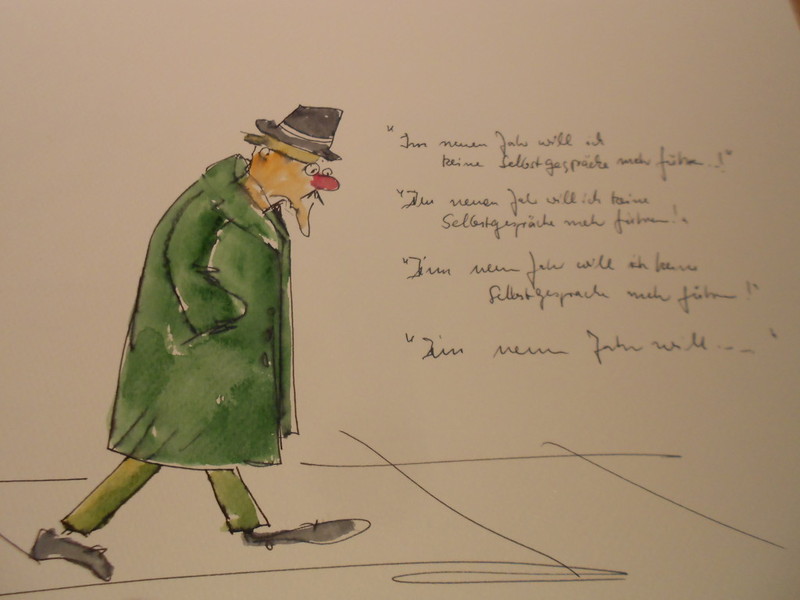 "Im neuen Jahr will ich
keine Selbstgespräche mehr führen!"
"Im neuen Jahr will ich keine
Selbstgespräche mehr führen!"
"Im neuen Jahr will ich keine
Selbstgespräche mehr führen!"
"Im neuen Jahr will ... "